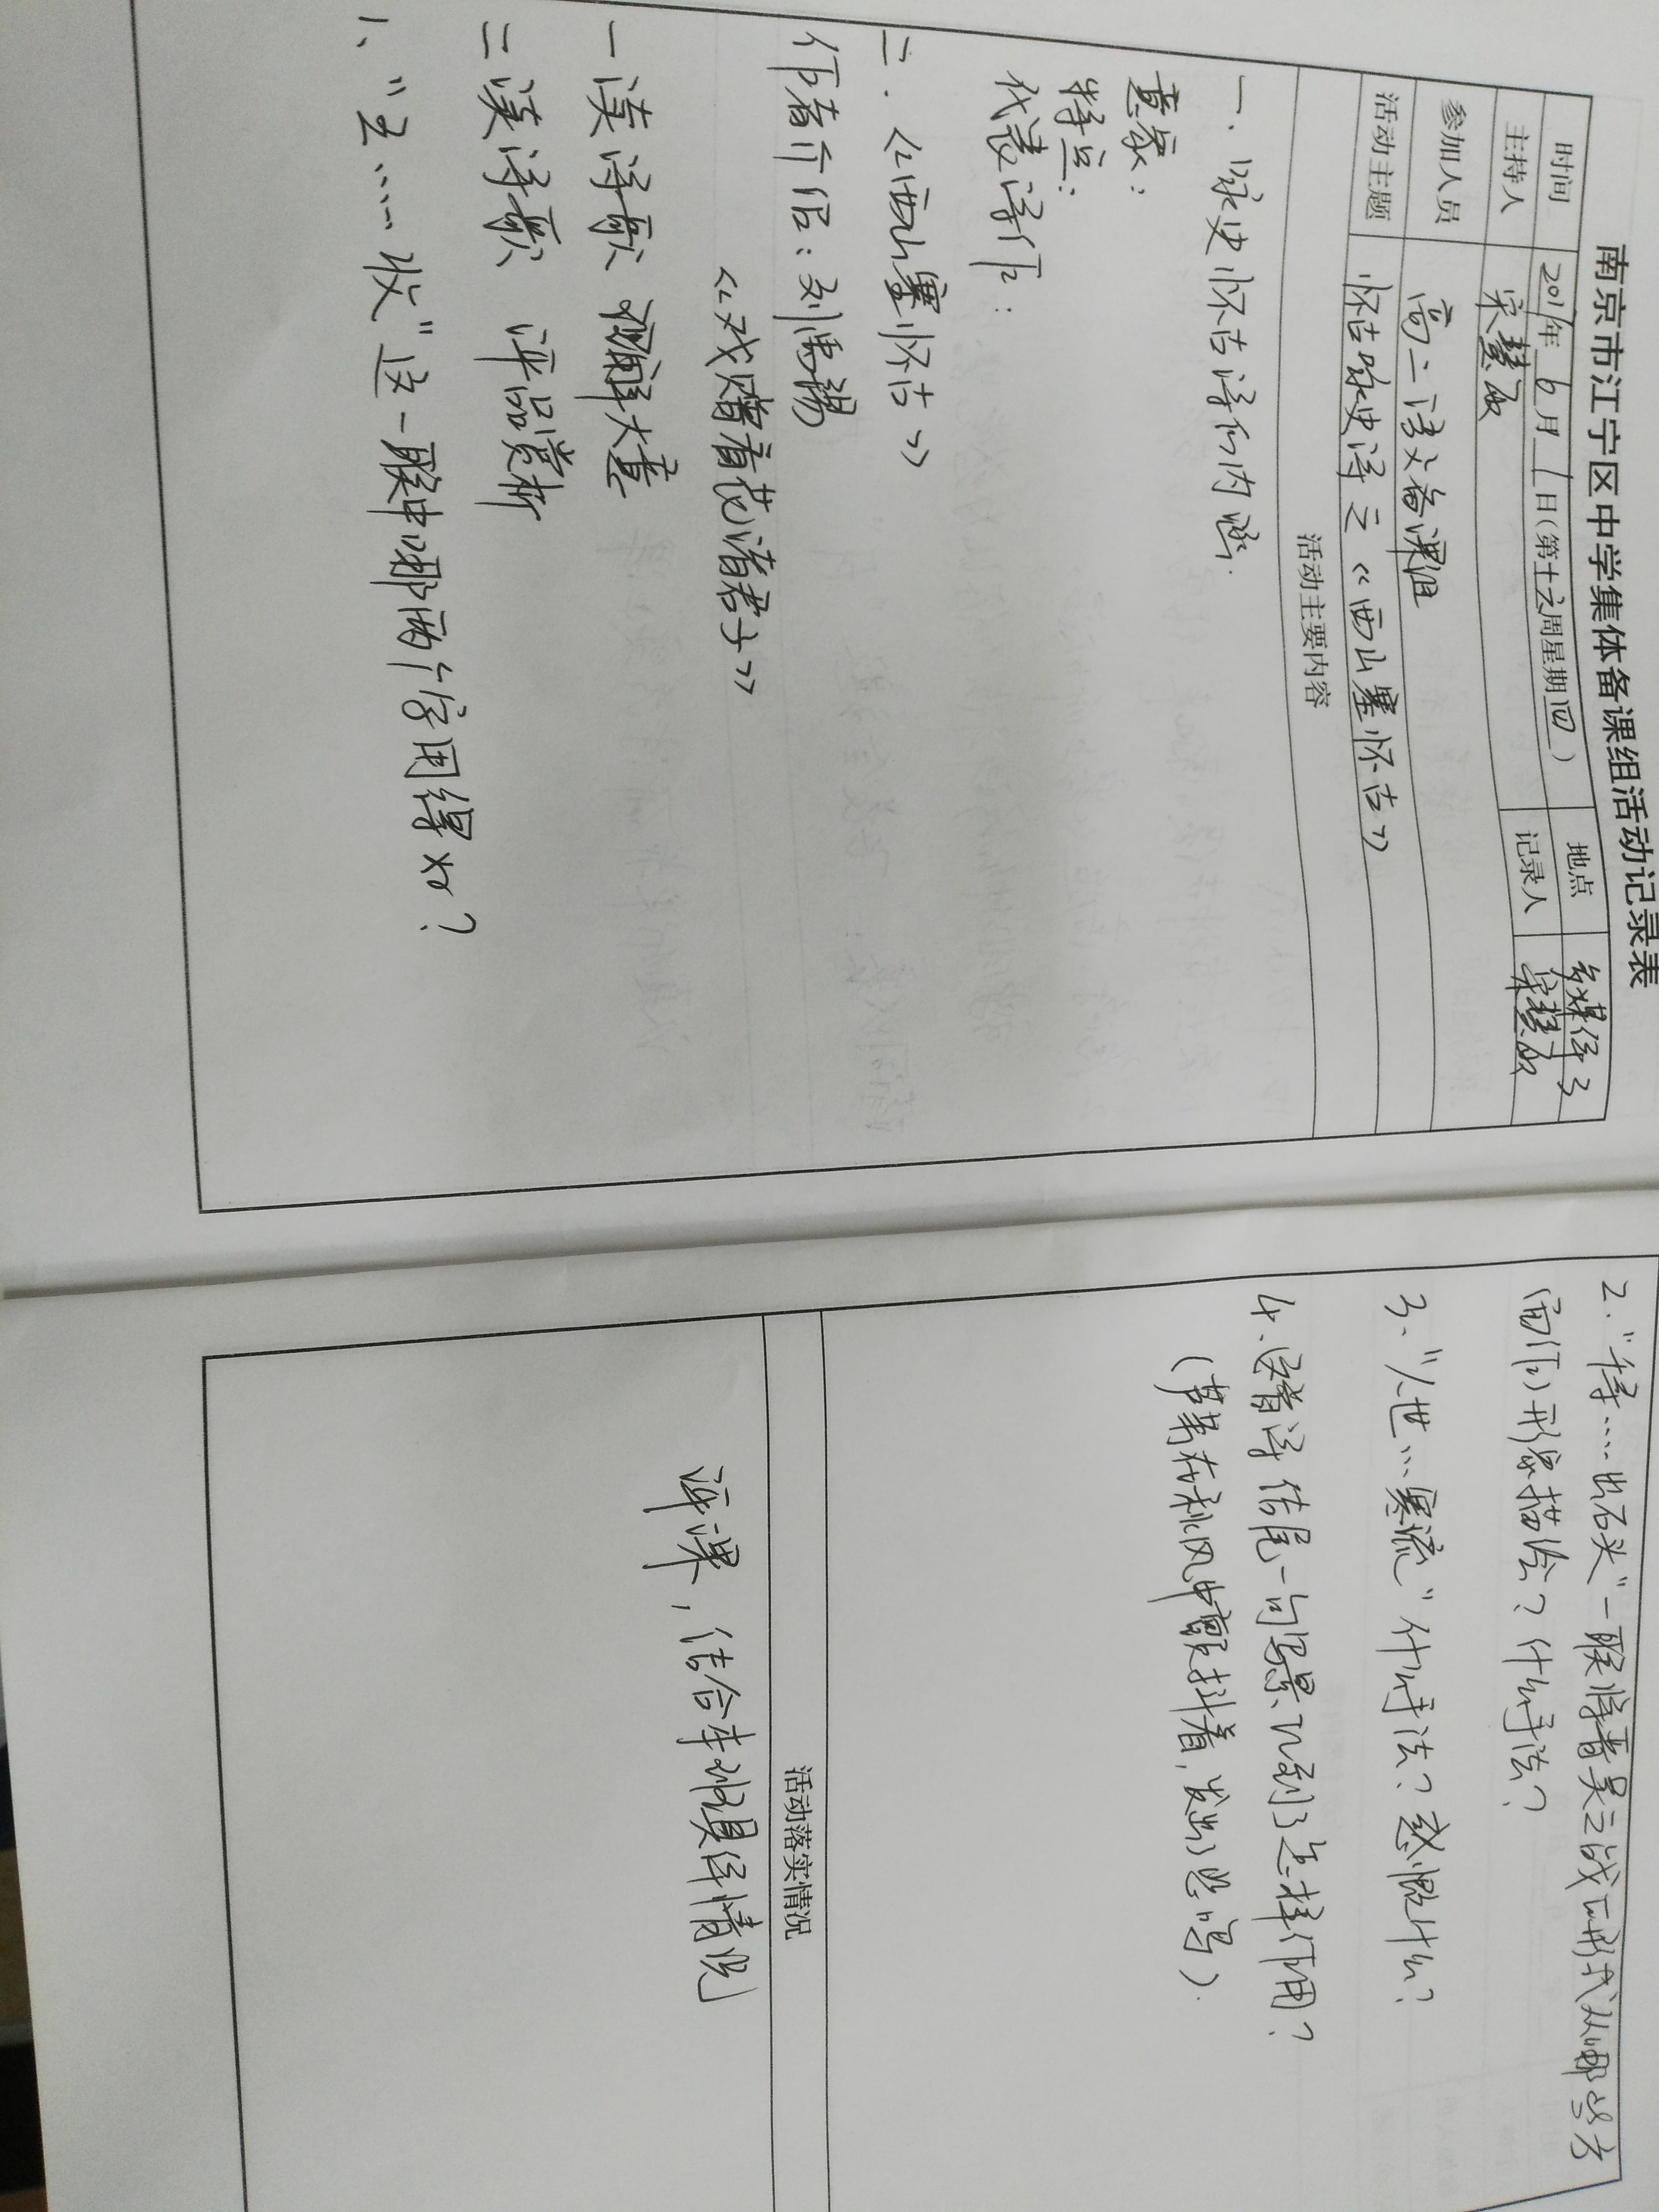 南京市江宁区中学集体备课组活动记录表
时间 201 年 6 月 1 日(第十六周星期四) 地点 多媒体3
主持人 宋慧敏 记录人 宋慧敏
参加人员 高二语文备课组
活动主题 怀古咏史诗之《西山塞怀古》
活动主要内容
一.咏史怀古诗的内涵.
意象:
特点:
代表诗作:
二.《西山塞怀古》
作者介绍:刘禹锡
《戏赠看花诸君子》
一读诗歌 理解大意
二读诗歌 评品赏析
1、"王……收"这一联中哪两个字用得好?
2."千寻……出石头"一联将晋吴之战的形式从哪些方
面作了形象描绘?什么手法?
3、"人世……寒流"什么手法?感慨什么?
4、这首诗结尾一句写景起到了怎样作用?
(芦苇在秋风中颤抖着,发出了悲鸣).
活动落实情况
评课,结合本班具体情况